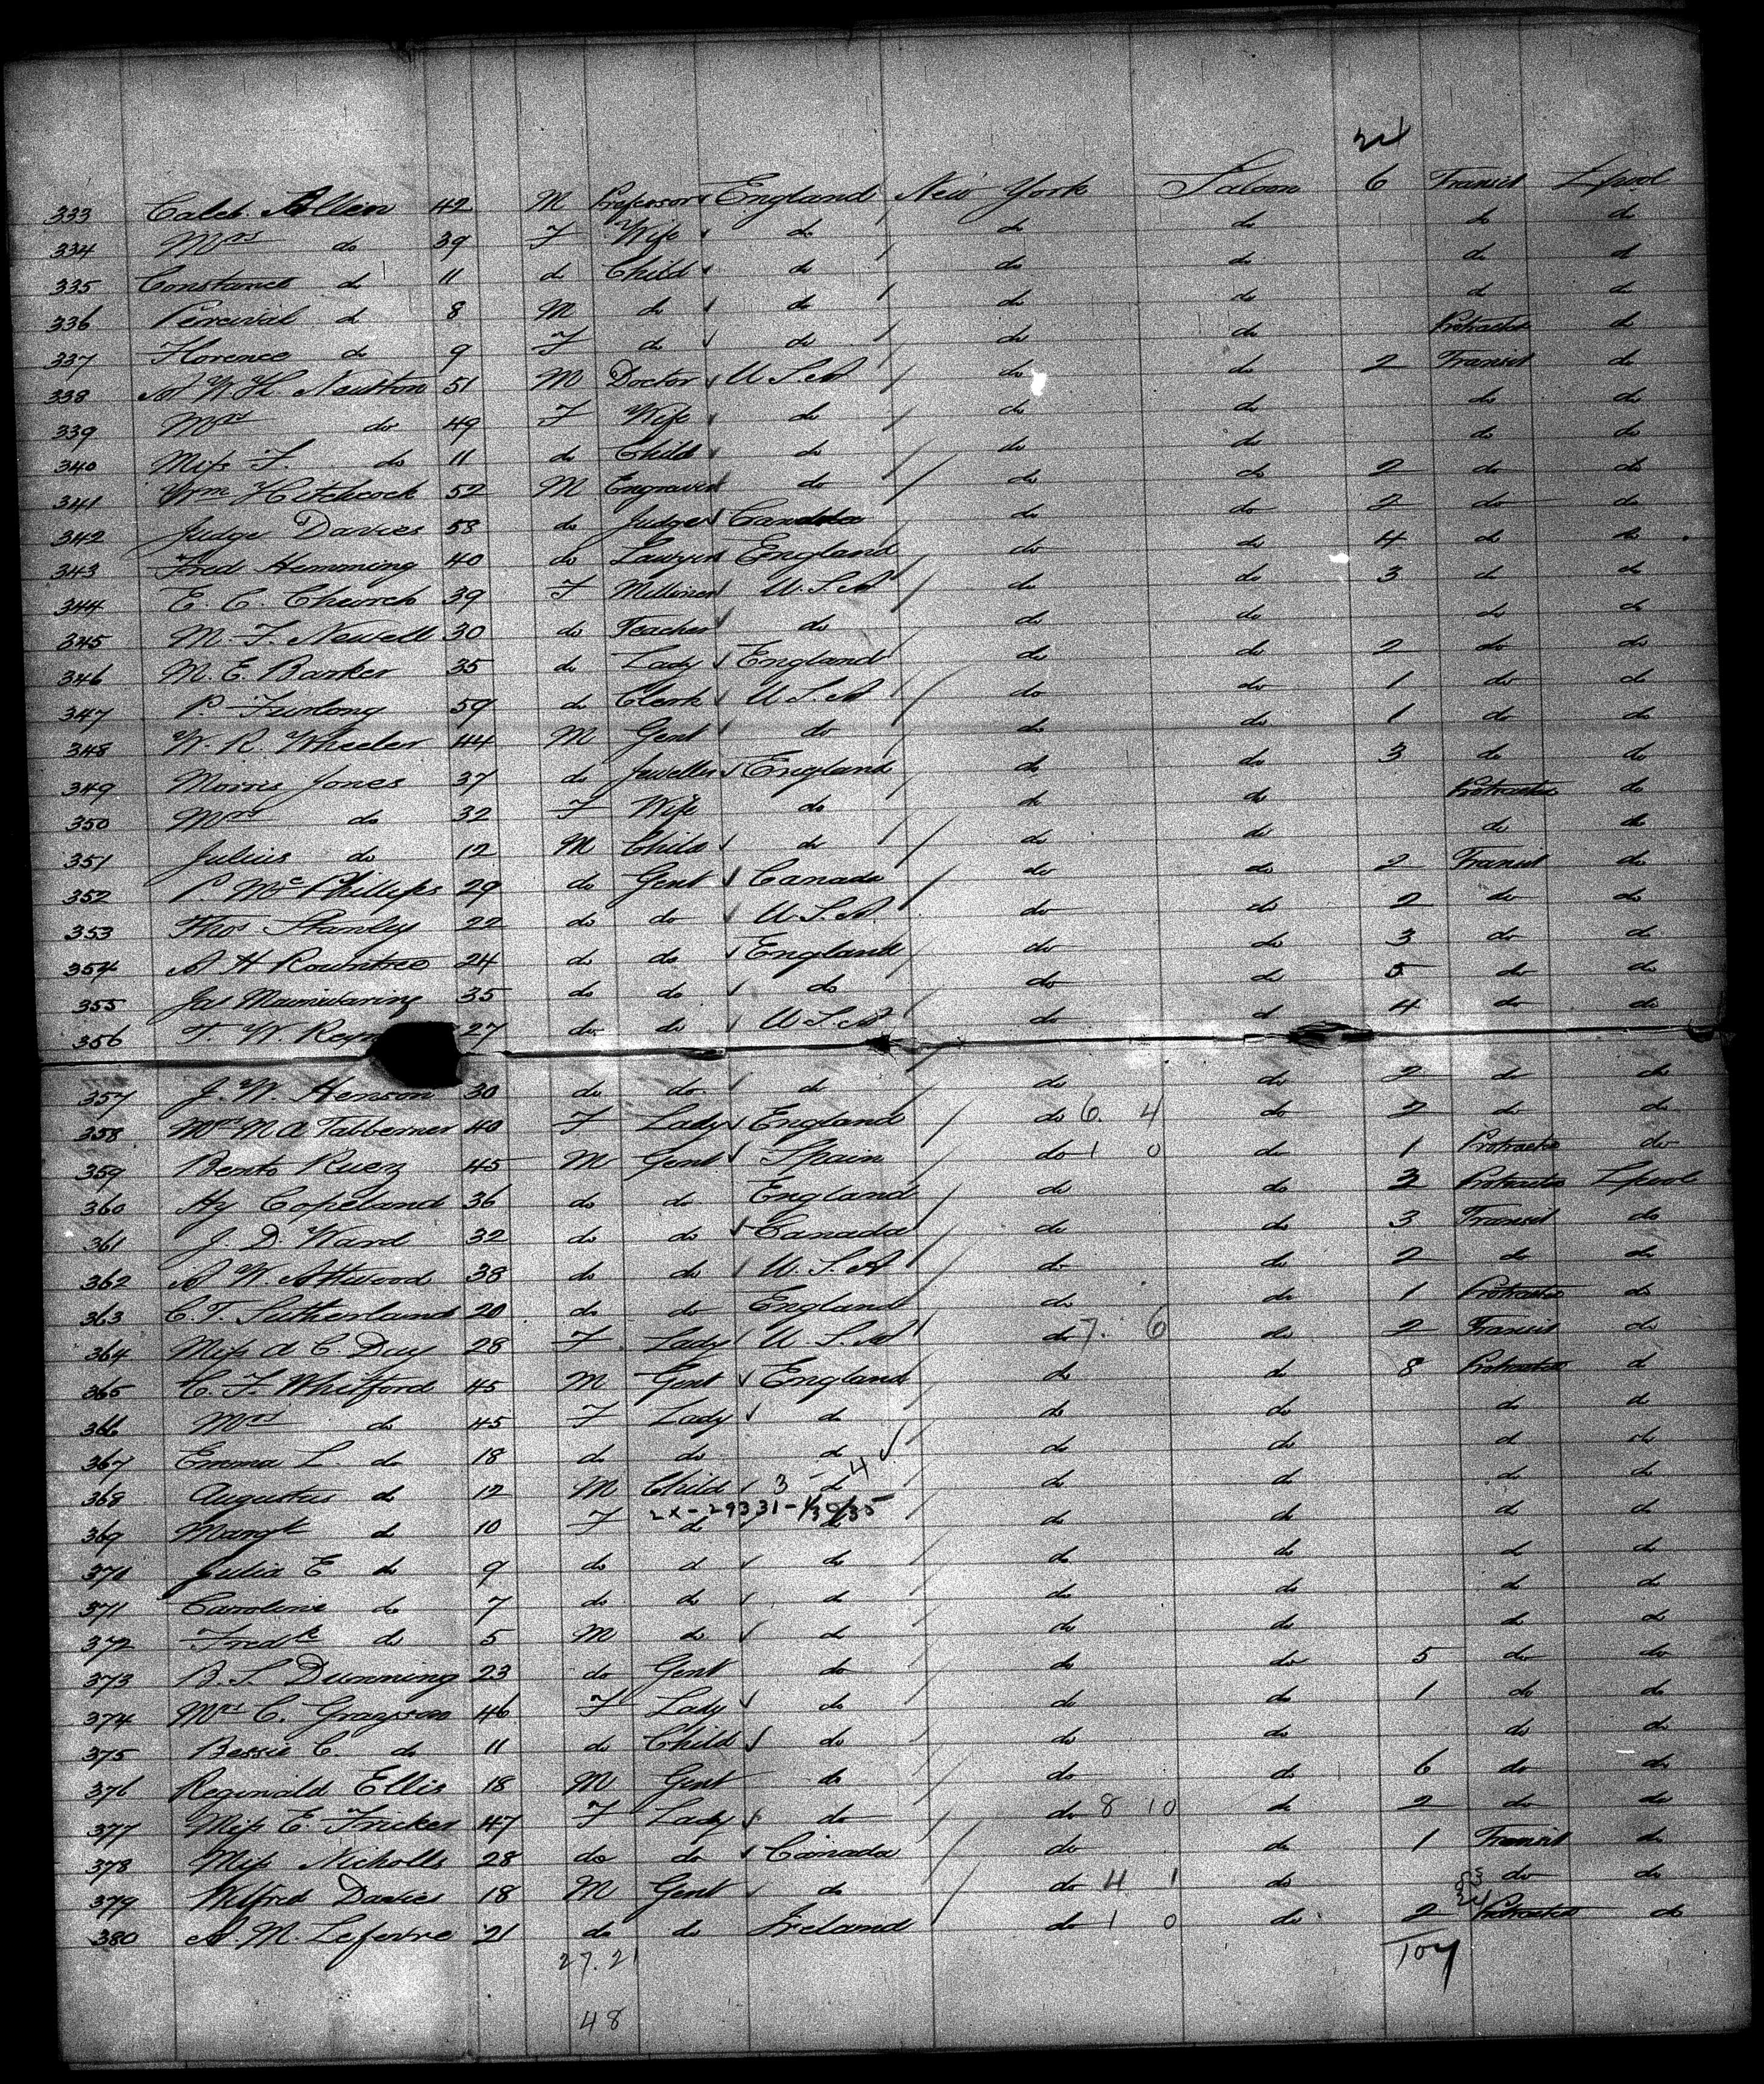 21
333 Caleb Allen 42 M Professor England New York Saloon 6 Transit Lpool
334 Mrs do 39 F Wife do do do do do
335 Constance do 11 do Child do do do do do
336 Percival do 8 M do do do do do do
337 Florence do 9 F do do do do Protracted do
338 A W H Newton 51 M Doctor U S A do do 2 Transit do
339 Mrs do 49 F Wife do do do do do
340 Miss F. do 11 do Child do do do do do
341 Wm Hitchcock 52 M Engraver do do do 2 do do
342 Judge Davies 58 do Judge Canada do do 2 do do
343 Fred Hemming 40 do Lawyer England do do 4 do do
344 E. C. Church 39 F Milliner U.S.A do do 3 do do
345 M. F. Newell 30 do Teacher do do do do do
346 M. E. Barker 35 do Lady England do do 2 do do
347 P. Furlong 59 do Clerk U.S.A do do 1 do do
348 W. R. Wheeler 44 M Gent do do do 1 do do
349 Morris Jones 37 do Jeweller England do do 3 do do
350 Mrs do 32 F Wife do do do Protracted do
351 Julius do 12 M Child do do do do do
352 P. Mc Phillips 29 do Gent Canada do do 2 Transit do
353 Thos Stanley 22 do do U.S.A. do do 2 do do
354 A H Rowntree 24 do do England do do 3 do do
355 Jas Mainwaring 35 do do do do do 5 do do
356 T. W. 27 do do U S A do do 4 do do
357 J. W. Henson 30 do do do do do 2 do do
358 Mrs M A Tabberner 40 F Lady England do 6. 4 do 2 do do
359 Bento Ruez 45 M Gent Spain do 1 0 do 1 Protracted do
360 Hy Copeland 36 do do England do do 3 Protracted Lpool
361 J. D. Ward 32 do do Canada do do 3 Transit do
362 A. W. Attwood 38 do do U.S.A do do 2 do do
363 C. T. Sutherland 20 do do England do do 1 Protracted do
364 Miss A C. Day 28 F Lady U.S.A do 7. 6 do 2 Transit do
365 C. F. Whitford 45 M Gent England do do 8 Protracted do
366 Mrs do 45 F Lady do do do do do
367 Emma L. do 18 do do do do do do do
368 Augustus do 12 M Child 3 - 4 do do do do do
2x-29331-1/30/35
369 Margt do 10 F do do do do do do
370 Julia E do 9 do do do do do do do
371 Caroline do 7 do do do do do do do
372 Fredk do 5 M do do do do do do
373 B. S. Dunning 23 do Gent do do do 5 do do
374 Mrs C. Grayson 46 F Lady do do do 1 do do
375 Bessie C. do 11 do Child do do do do do
376 Reginald Ellis 18 M Gent do do do 6 do do
377 Miss E Fricker 47 F Lady do do 8 10 do 2 do do
378 Miss Nicholls 28 do do Canada do do 1 Transit do
379 Wilfred Davies 18 M Gent do do 4 1 do do do
380 A. M. Lefevre 21 do do Ireland do 1 0 do 2 Protracted do
27.21 104
48